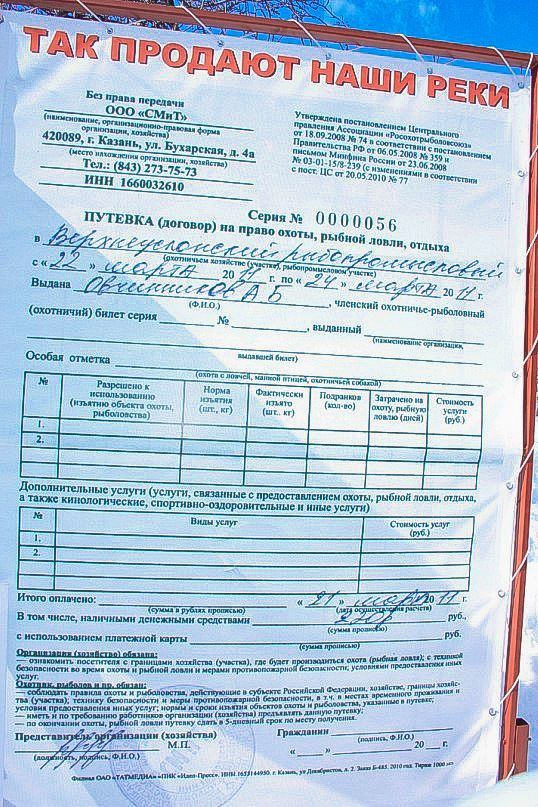 ТАК ПРОДАЮТ НАШИ РЕКИ
Без права передачи
ООО «СМиТ»
(наименование, организационно-правовая форма
организации, хозяйства)
420089, г. Казань, ул. Бухарская, д. 4а
(место нахождения организации, хозяйства)
Тел.: (843) 273-75-73
ИНН 1660032610
Утверждена постановлением Центрального
правления Ассоциации «Росохотрыболовсоюз»
от 18.09.2008 № 74 в соответствии с постановлением
Правительства РФ от 06.05.2008 № 359 и
письмом Минфина России от 23.06.2008
№ 03-01-15/8-239 (с изменениями в соответствии
с пост. ЦС от 20.05.2010 № 77
Серия № 0000056
ПУТЕВКА (договор) на право охоты, рыбной ловли, отдыха
в Верхнеуслонский рыбопромысловый
(охотничьем хозяйстве (участке), рыбопромысловом участке)
с « 22 » марта 20 11 г. по « 24 » марта 20 11 г.
Выдана Овчинников А Б , членский охотничье-рыболовный
(Ф.И.О.)
(охотничий) билет серия № , выданный
(наименование организации,
выдавшей билет)
Особая отметка
(охота с ловчей, манной птицей, охотничьей собакой)
№ Разрешено к использованию (изъятию объекта охоты, рыболовства) Норма изъятия (шт., кг) Фактически изъято (шт., кг) Подранков (кол-во) Затрачено на охоту, рыбную ловлю (дней) Стоимость услуги (руб.)
1.
2.
Дополнительные услуги (услуги, связанные с предоставлением охоты, рыбной ловли, отдыха,
а также кинологические, спортивно-оздоровительные и иные услуги)
№ Виды услуг Стоимость услуг (руб.)
1.
2.
Итого оплачено: « 21 » марта 20 11 г.
(сумма в рублях прописью) (дата осуществления расчета)
В том числе, наличными денежными средствами руб.,
(сумма прописью)
с использованием платежной карты руб.
(сумма прописью)
Организация (хозяйство) обязана:
— ознакомить посетителя с границами хозяйства (участка), где будет производиться охота (рыбная ловля); с техникой
безопасности во время охоты и рыбной ловли и мерами противопожарной безопасности; условиями предоставления иных
услуг.
Охотник, рыболов и пр. обязан:
— соблюдать правила охоты и рыболовства, действующие в субъекте Российской Федерации, хозяйстве, границы хозяйс-
тва (участка); технику безопасности и меры противопожарной безопасности, в т.ч. в местах временного проживания и
условия предоставления иных услуг; нормы и сроки изъятия объектов охоты и рыболовства, указанные в путевке;
— иметь и по требованию работников организации (хозяйства) предъявлять данную путевку;
— по окончании охоты, рыбной ловли путевку сдать в 5-дневный срок по месту получения.
Представитель организации (хозяйства) Гражданин
М.П.
(подпись, Ф.И.О.)
(должность, подпись, Ф.И.О.) « » 20 г.
Филиал ОАО «ТАТМЕДИА» «ПИК «Идел-Пресс». ИНН 1655144950. г. Казань, ул. Декабристов, д. 2. Заказ Б-485. 2010 год. Тираж 1000 экз.